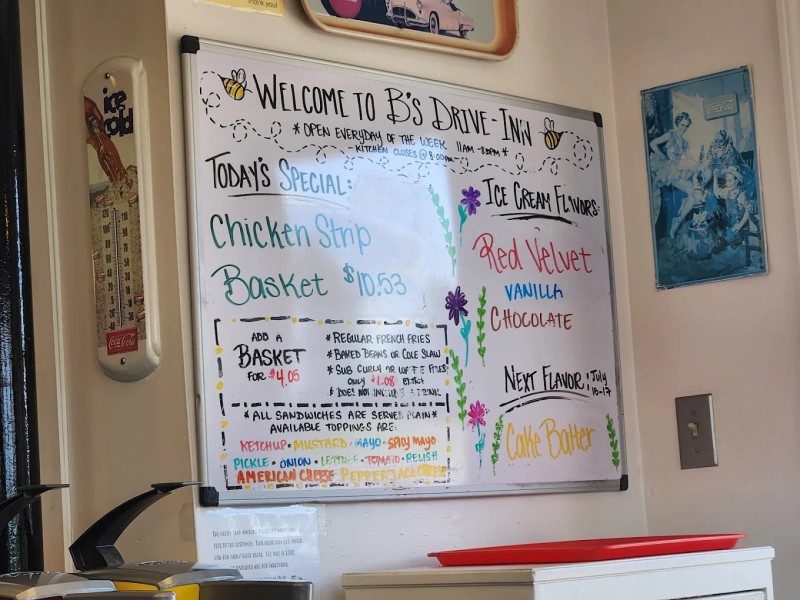 thank you!
ice
cold
Coca-Cola
WELCOME TO B'S DRIVE-INN
* OPEN EVERYDAY OF THE WEEK 11AM-8PM *
KITCHEN CLOSES @ 8:00PM
TODAY'S SPECIAL:
Chicken Strip
Basket $10.53
ADD A
BASKET
FOR $4.05
* REGULAR FRENCH FRIES
* BAKED BEANS OR COLE SLAW
* SUB CURLY OR WAFFLE FRIES
ONLY $1.08 EXTRA
* DOES NOT INCLUDE A DRINK
* ALL SANDWICHES ARE SERVED PLAIN *
AVAILABLE TOPPINGS ARE:
KETCHUP • MUSTARD • MAYO • SPICY MAYO
PICKLE • ONION • LETTUCE • TOMATO • RELISH
AMERICAN CHEESE PEPPER JACK CHEESE
ICE CREAM FLAVORS:
Red Velvet
VANILLA
CHOCOLATE
NEXT FLAVOR: July
10-17
Cake Batter
Coca-Cola